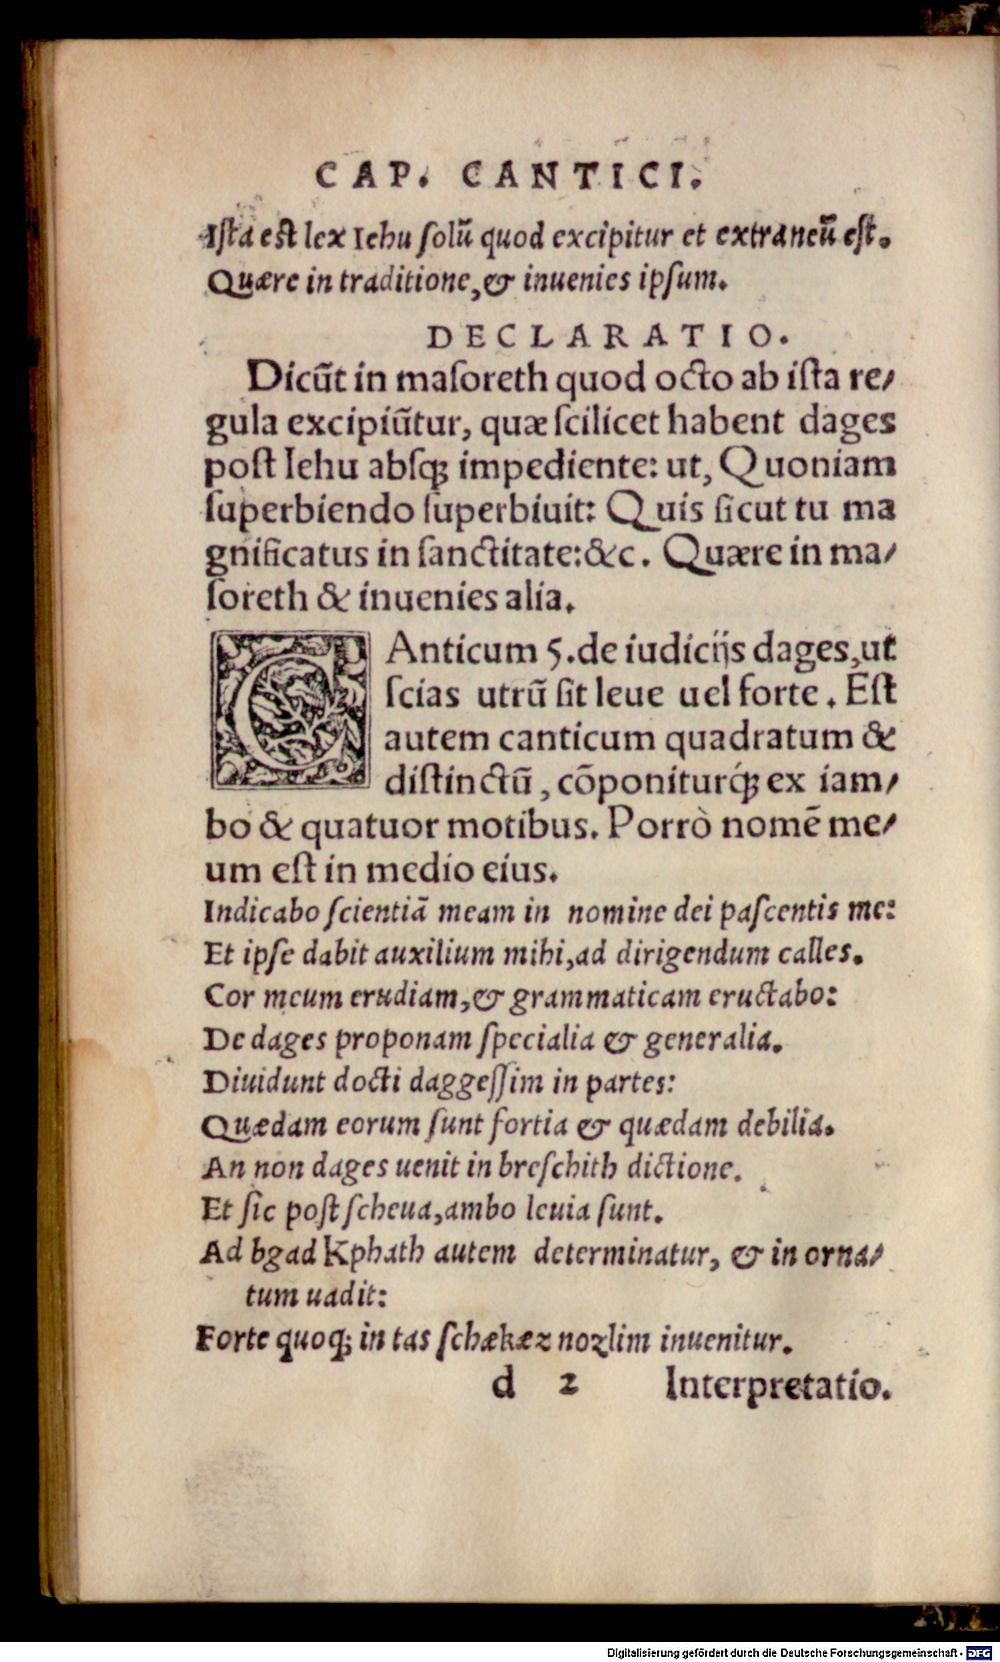 CAP. CANTICI.
Iſta eſt lex Iehu ſolū quod excipitur et extraneū eſt.
Quære in traditione, & inuenies ipſum.
DECLARATIO.
Dicūt in maſoreth quod octo ab iſta re⸗
gula excipiūtur, quæ ſcilicet habent dages
poſt Iehu abſqꝫ impediente: ut, Quoniam
ſuperbiendo ſuperbiuit: Quis ſicut tu ma
gnificatus in ſanctitate: &c. Quære in ma⸗
ſoreth & inuenies alia.
CAnticum 5. de iudicijs dages, ut
ſcias utrū ſit leue uel forte. Eſt
autem canticum quadratum &
diſtinctū, cōponiturqꝫ́ ex iam⸗
bo & quatuor motibus. Porrò nomē me⸗
um eſt in medio eius.
Indicabo ſcientiā meam in nomine dei paſcentis me:
Et ipſe dabit auxilium mihi, ad dirigendum calles.
Cor meum erudiam, & grammaticam eructabo:
De dages proponam ſpecialia & generalia.
Diuidunt docti daggeſſim in partes:
Quædam eorum ſunt fortia & quædam debilia.
An non dages uenit in breſchith dictione.
Et ſic poſt ſcheua, ambo leuia ſunt.
Ad bgad Kphath autem determinatur, & in orna⸗
tum uadit:
Forte quoqꝫ in tas ſchækæz nozlim inuenitur.
d 2 Interpretatio.
Digitalisierung gefördert durch die Deutsche Forschungsgemeinschaft - DFG